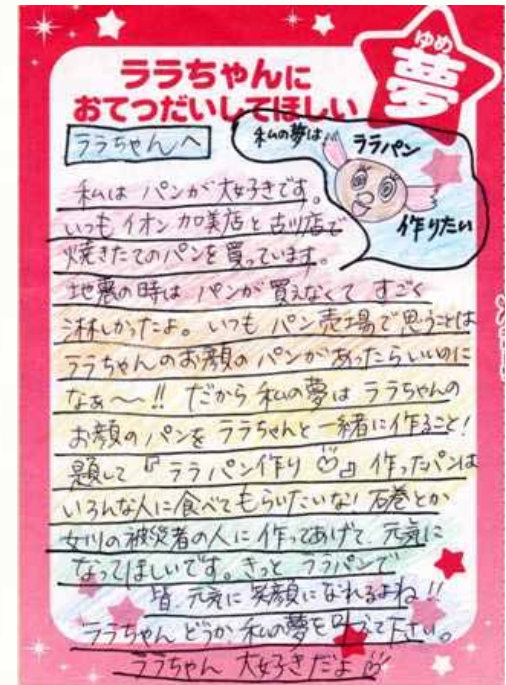 ゆめ
夢
ララちゃんに
おてつだいしてほしい
ララちゃんへ
私の夢は
ララパン
作りたい
私は パンが大好きです。
いつも イオン 加美店と古川店で
焼きたてのパンを買っています。
地震の時は パンが買えなくて すごく
淋しかったよ。いつも パン売場で思うことは
ララちゃんのお顔の パンがあったらいいのに
なぁ〜〜!! だから 私の夢は ララちゃんの
お顔のパンを ララちゃんと一緒に作ること!
題して『ララパン作り』作ったパンは
いろんな人に食べてもらいたいな! 石巻とか
女川の被災者の人に作ってあげて、元気に
なってほしいです。きっと ララパンで
皆、元気に 笑顔に なれるよね!!
ララちゃん どうか 私の夢を叶えて下さい。
ララちゃん 大好きだよ